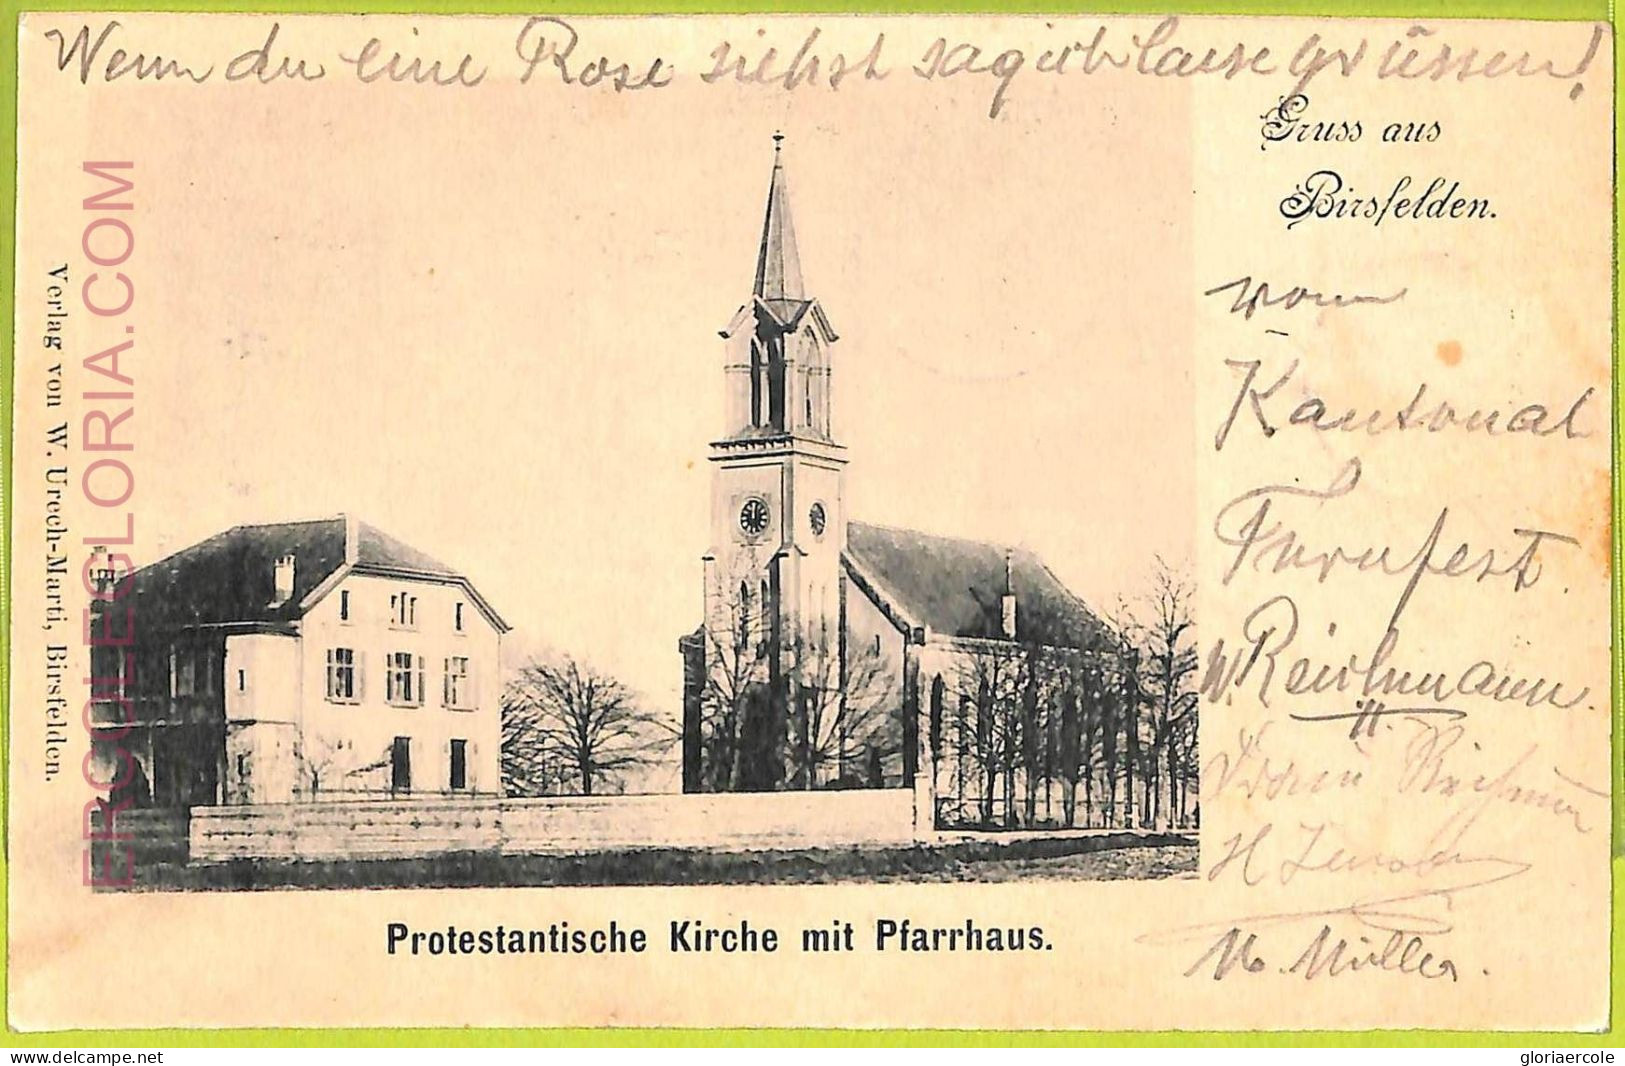 Wenn du eine Rose siehst sag ich lasse grüssen!
Gruss aus
Birsfelden.
vom
Kantonal
Turnfest.
W. Reichmann.
Frau
H
M. Müller.
Verlag von W. Urech-Marti, Birsfelden.
ERCOLEGLORIA.COM
Protestantische Kirche mit Pfarrhaus.
delcampe.net
gloriaercole